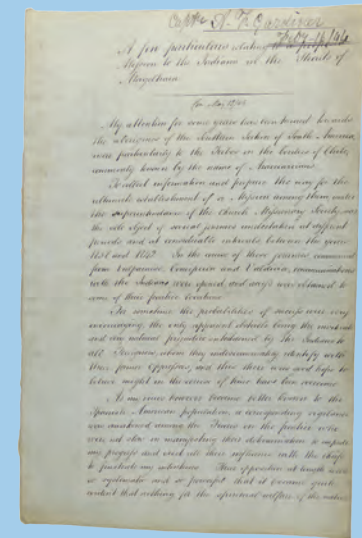 Capt. A. F. Gardiner
A few particulars relating to a
Mission to the Indians in the Straits of
Magellan
My attention for some years has been turned towards
the aborigines of the Southern Section of South America,
more particularly to the Tribes in the borders of Chile,
commonly known by the name of Araucanians.
To collect information and prepare the way for the
ultimate establishment of a Mission among them, under
the superintendence of the Church Missionary Society, was
the sole object of several journies undertaken at different
periods and at considerable intervals, between the years
1838 and 1843. In the course of these journies commenced
from Valparaiso, Concepcion and Valdivia, communications
with the Indians were opened, and access was obtained to
some of their frontier locations.
For sometime the probabilities of success were very
encouraging, the only apparent obstacle being the
and natural prejudice entertained by the Indians to
all Foreigners, whom they indiscriminately identify with
their former oppressors, and this there was good hope to
believe might in the course of time have been overcome.
As my views however became better known to the
Spanish American population, a corresponding vigilance
was awakened among the in the frontier who
were not slow in manifesting their determination to impede
my progress and used all their influence with the chiefs
to frustrate my intentions. Their opposition at length
so systematic and so powerful that it became quite
evident that nothing for the spiritual welfare of the natives